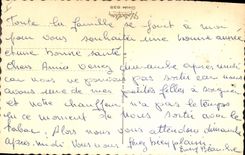 Toute la famille se joint à moi
pour vous souhaiter une bonne année
et une bonne santé.
Chers Amis venez dimanche après midi
car nous ne pouvons pas sortir car nous
avons une de mes petites filles à soigner
et votre chauffeur n'a plus le temps
en ce moment de nous sortir avec le
tabac. Alors nous vous attendons dimanche
après midi. Vous nous ferez bien plaisir.
Blanche